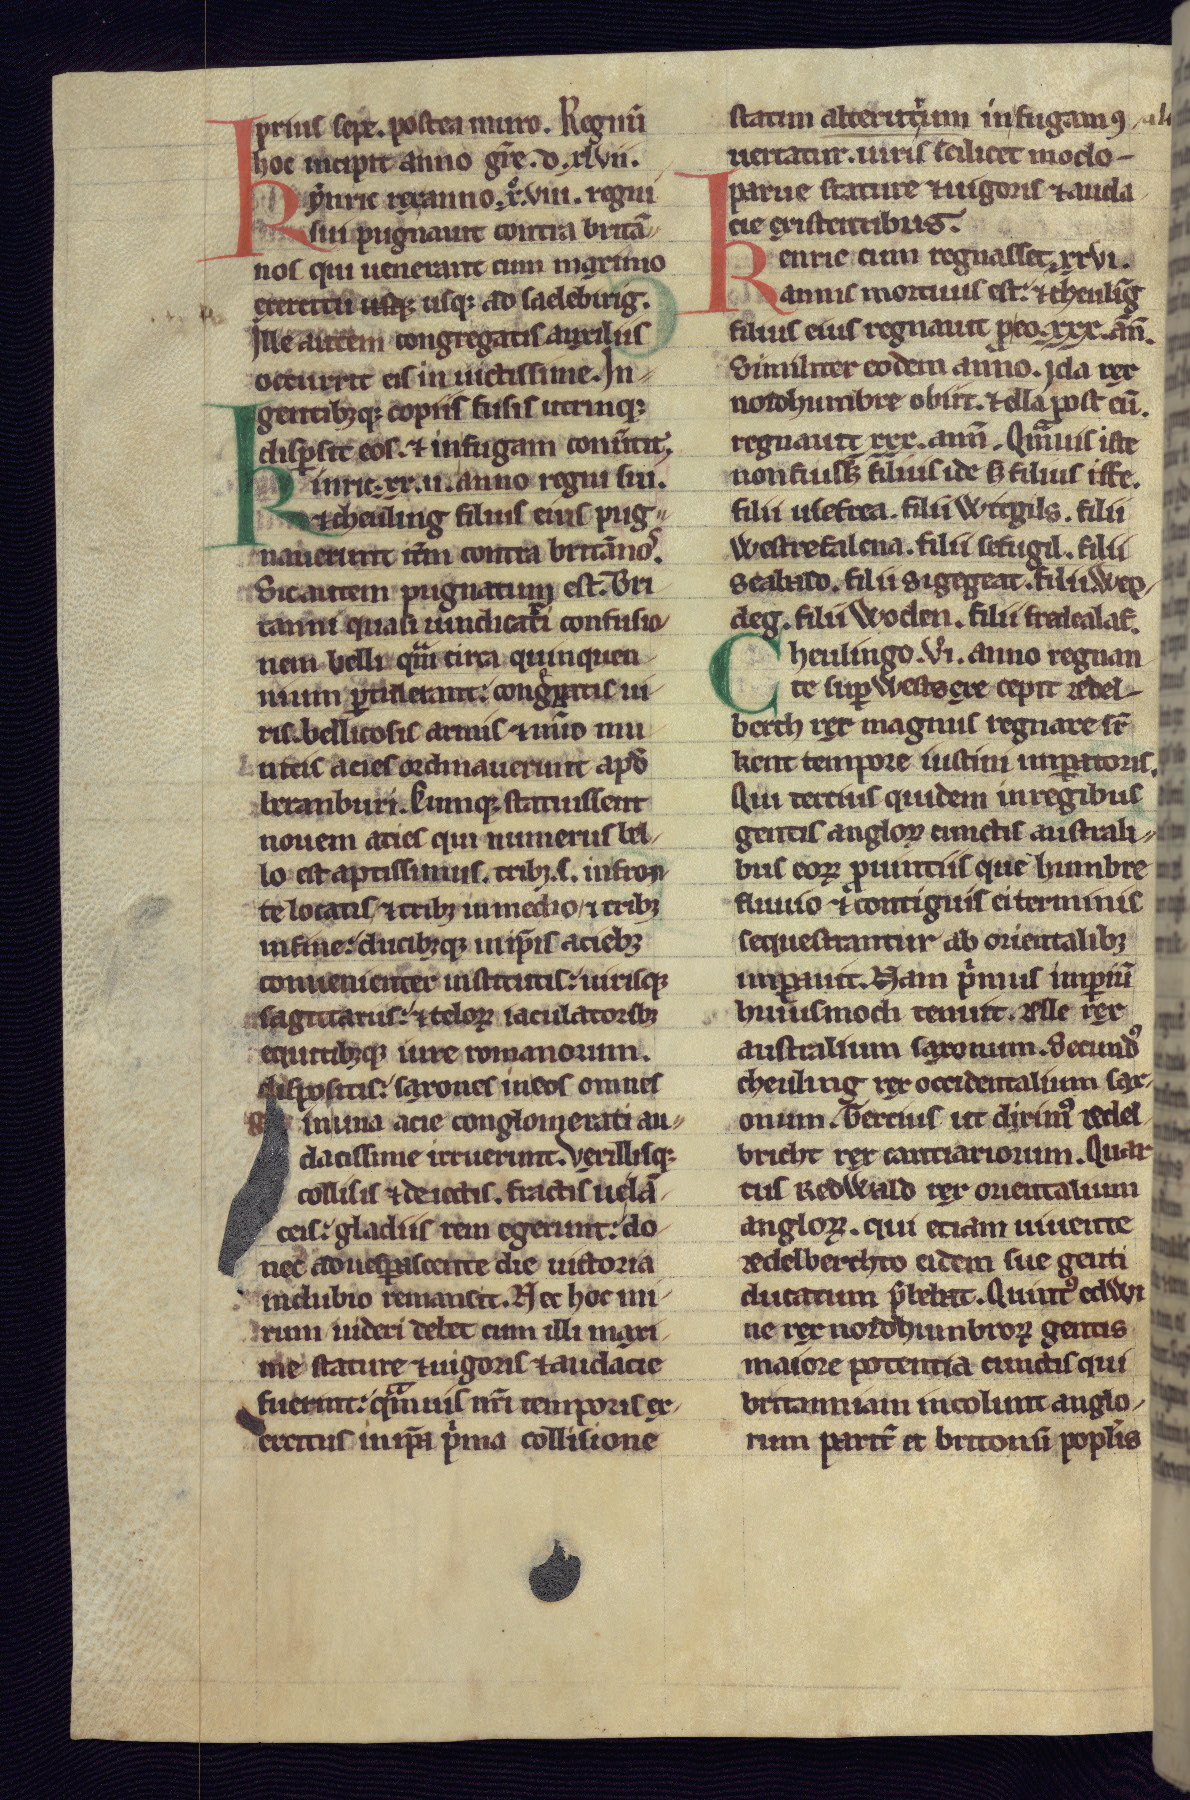 prius sepe. postea muro. Regnū
hoc incipit anno gr̄e. d. xlvii.
Kynric rex anno. x̊. viii. regni
sui pugnauit contra britā-
nos qui uenerant cum maximo
exercitu usq; usq; ad saelebirig.
Ille autem congregatis auxiliis
occurrit eis inuictissime. In-
gentibȝq; copiis fusis utrinq;
disp̄sit eos. ⁊ in fugam conūtit.
Kinric. xx. ii. anno regni sui.
⁊ cheuling filius eius pug-
nauerunt it̄m contra britānos.
Sic autem pugnatum est. Bri
tanni quasi uindicat̄i confusio-
nem belli qm̄ circa quinquen
nium p̄tulerant: conḡgatis ui
ris bellicosis armis ⁊ nūo mu
nitis acies ordinauerunt apd̄
beranburi. Cumq; statuissent
nouem acies qui numerus bel-
lo est aptissimus. tribȝ. s. in fron
te locatis/ ⁊ tribȝ in medio/ ⁊ tribȝ
in fine: ducibȝq; in ip̄is aciebȝ
conuenienter institutis: uirisq;
sagittariis: ⁊ teloꝝ iaculatoribȝ
equitibȝq; iure romanorum.
dispositis: saxones in eos omnes
in una acie conglomerati au-
dacissime irruerunt. Verillisq;
collisis ⁊ deiectis. fractis uel lā-
ceis: gladiis rem egerunt: do
nec aduesp̄ascente die uictoria
in dubio remansit. Nec hoc mi
rum uideri debet cum illi maxi
me stature ⁊ uigoris ⁊ audacie
fuerint: qm̄uis nr̄i temporis ex-
ercitus in ip̄a p̄ma collisione
statim alterut̄um in fugam 9
uertatur. uiris scilicet modo-
parue stature ⁊ uigoris ⁊ auda
cie existentibus.
Kenric cum regnasset. xxvi.
annis mortuus est: ⁊ cheulīg
filius eius regnauit p̄ eo. xxx. añ.
Similiter eodem anno. Ida rex
nordhumbre obiit. ⁊ ella post eū.
regnauit xxx. ann̄. Qm̄uis iste
non fuisȝ filius ide sȝ filius iffe.
filii usefrea. filii Witgils. filii
Westrefalcna. filii sefugil. filii
seabald. filii sigegeat. filii Wep-
deg. filii Woden. filii fredealaf.
Cheulingo. Vi. anno regnan
te sup̄ Westsexe cepit ædel-
berch rex magnus regnare ī
kent tempore iustini imp̄atoris.
Qui tertius quidem in regibus
gentis angloꝝ cunctis australi-
bus eoꝝ p̄uintiis que humbre
fluuio ⁊ contiguis ei terminis
sequestrantur ab orientalibȝ
imp̄auit. Nam p̄mus imp̄iū
huiusmodi tenuit. ælle rex
australium saxonum. Secund9
cheuling rex occidentalium sax-
onum. Tertius ut dixim9 ædel
bricht rex cantiariorum. Quar
tus Redwald rex orientalium
angloꝝ. qui etiam uiuente
ædelberchto eidem sue genti
ducatum p̄bebat. Quint9 edwi
ne rex nordhumbroꝝ gentis
maiore potentia cunctis qui
britanniam incolunt anglo-
rum parit̄ et britonū poplis